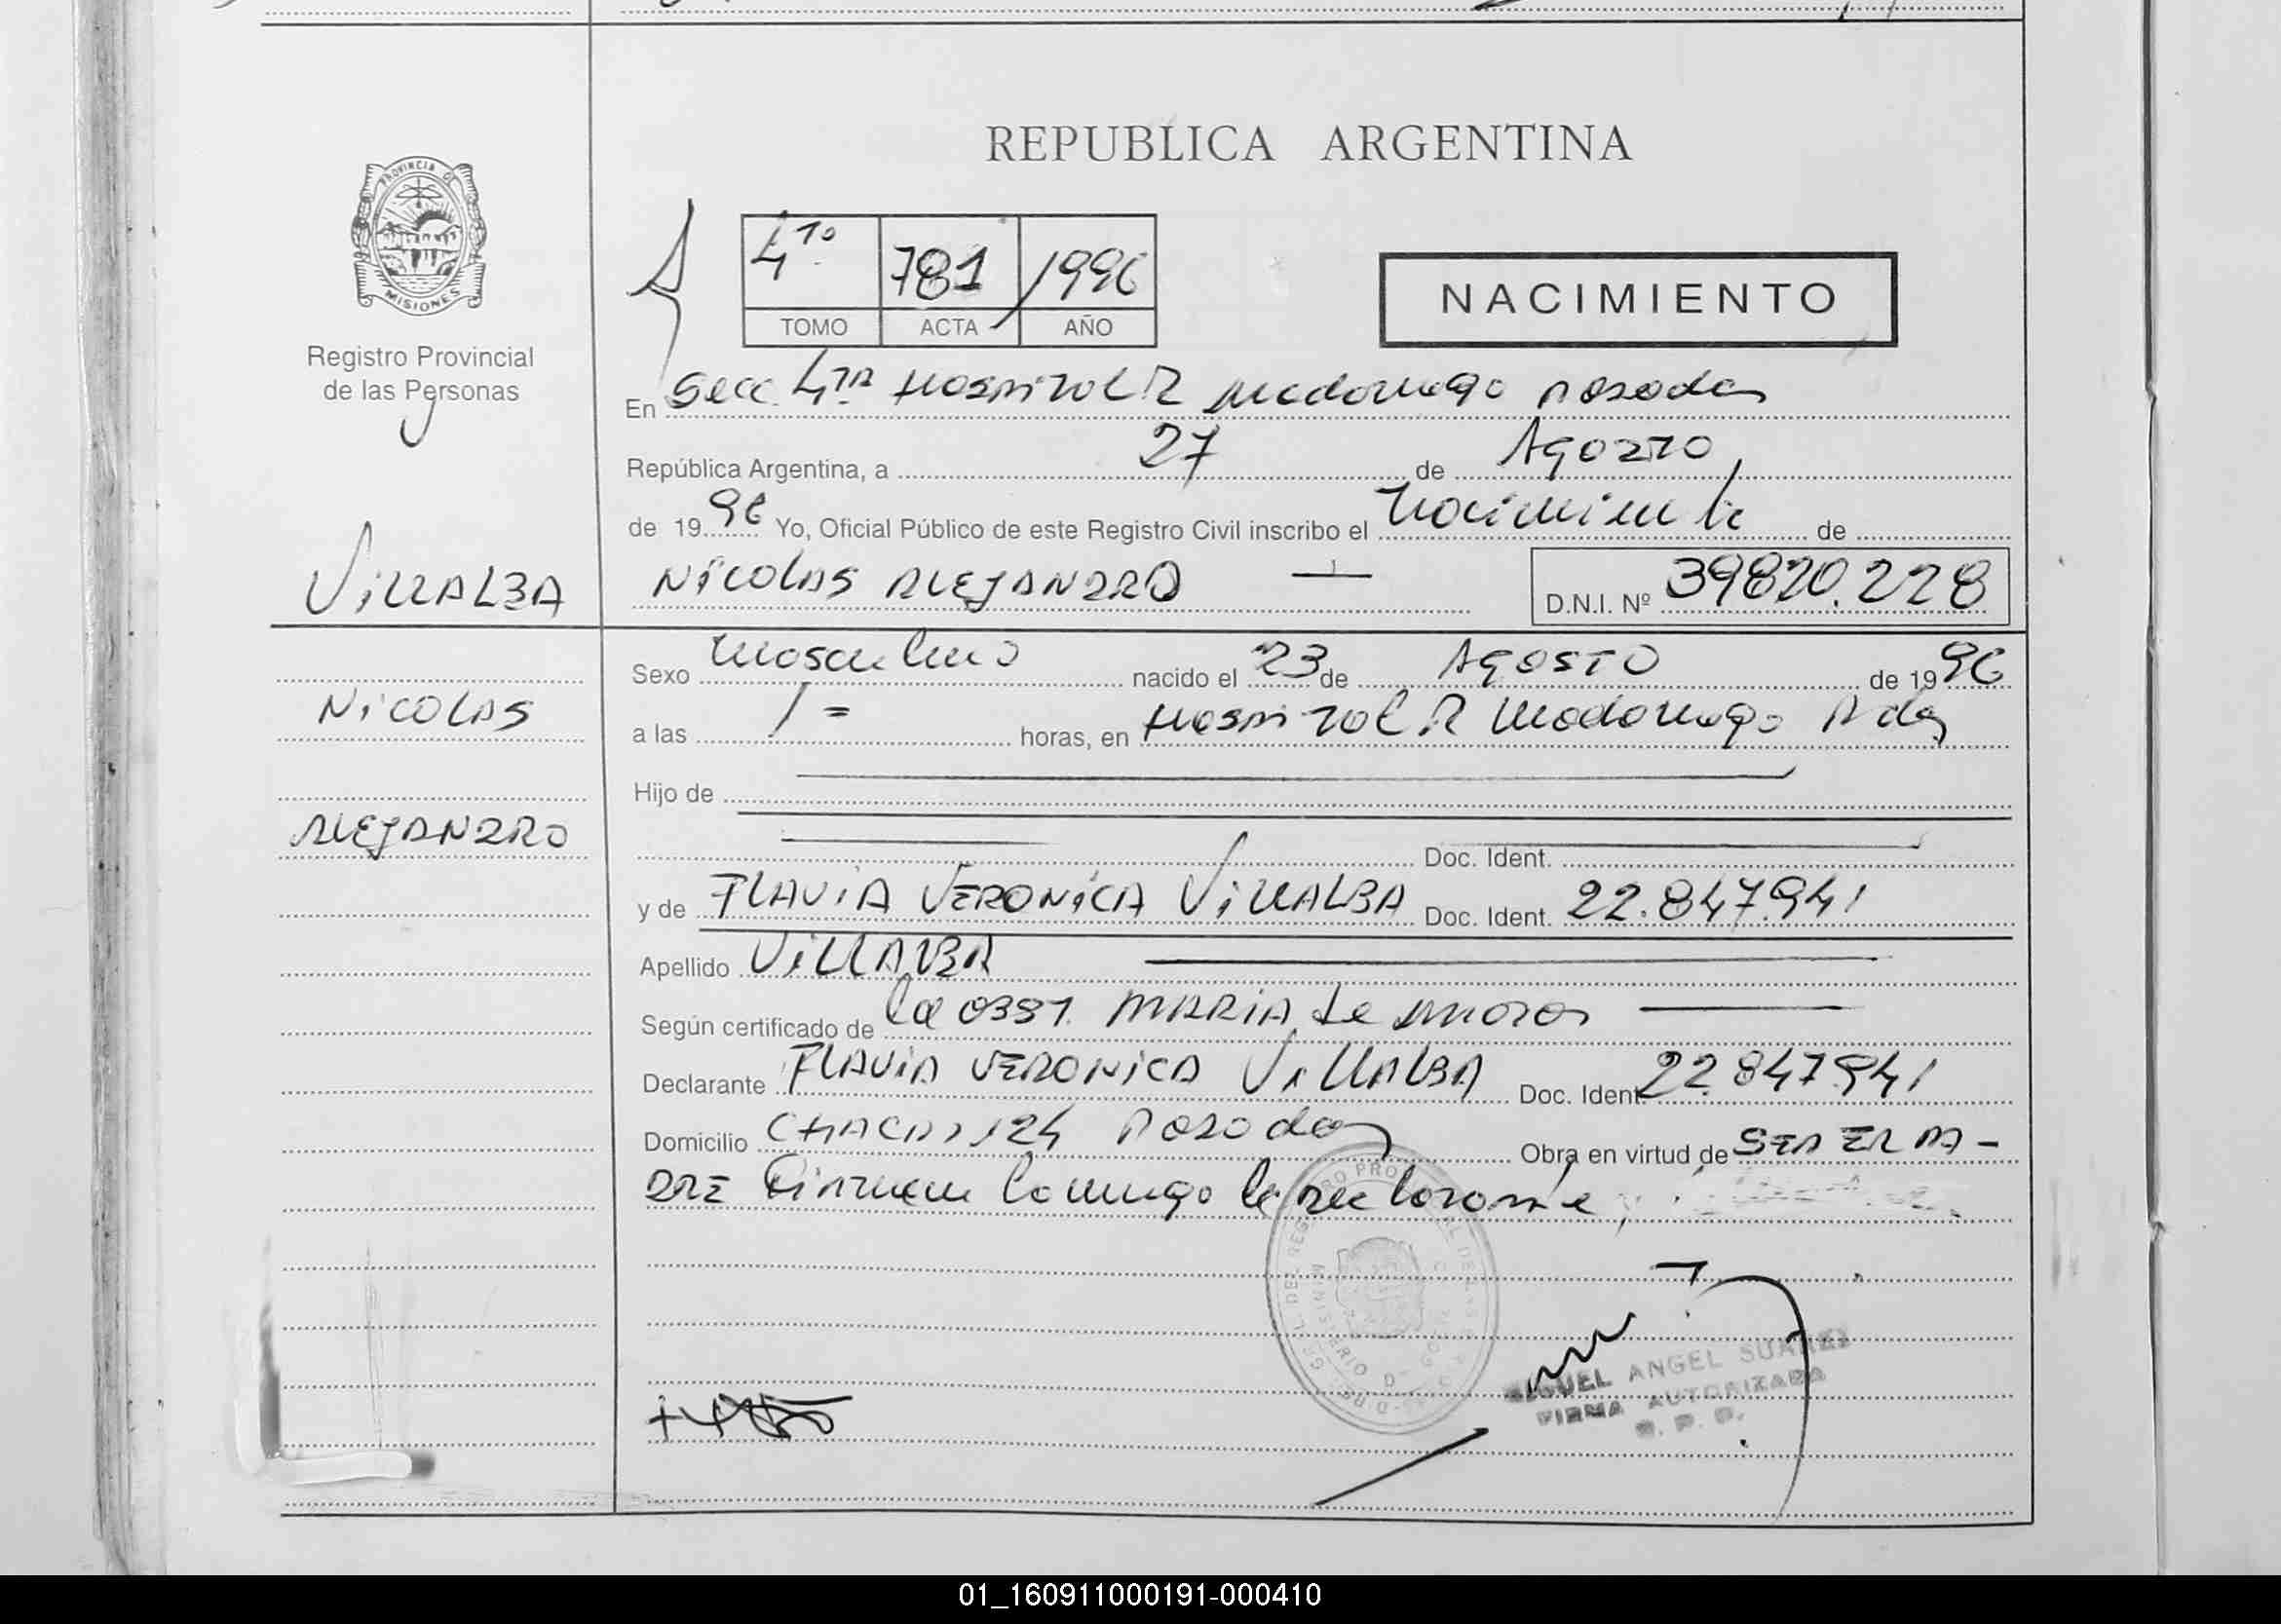 REPUBLICA ARGENTINA
PROVINCIA DE
MISIONES
Registro Provincial
de las Personas
4to 781 1996
TOMO ACTA AÑO
NACIMIENTO
En Secc. 4ta Hospital R Madariaga Posadas
República Argentina, a 27 de Agosto
de 1996 Yo, Oficial Público de este Registro Civil inscribo el Nacimiento de
VILLALBA
NICOLAS ALEJANDRO — D.N.I. Nº 39820.228
Sexo Masculino nacido el 23 de AGOSTO de 1996
NICOLAS
a las 1 = horas, en Hospital R Madariaga Pdas
Hijo de
ALEJANDRO
Doc. Ident.
y de FLAVIA VERONICA VILLALBA Doc. Ident. 22.847.941
Apellido VILLALBA
Según certificado de la obst. MARIA de
Declarante FLAVIA VERONICA VILLALBA Doc. Ident. 22.847.941
Domicilio Posadas Obra en virtud de SER EL MA-
DRE conmigo la declarante,
MIGUEL ANGEL SUAREZ
FIRMA AUTORIZADA
R. P. P.
01_160911000191-000410